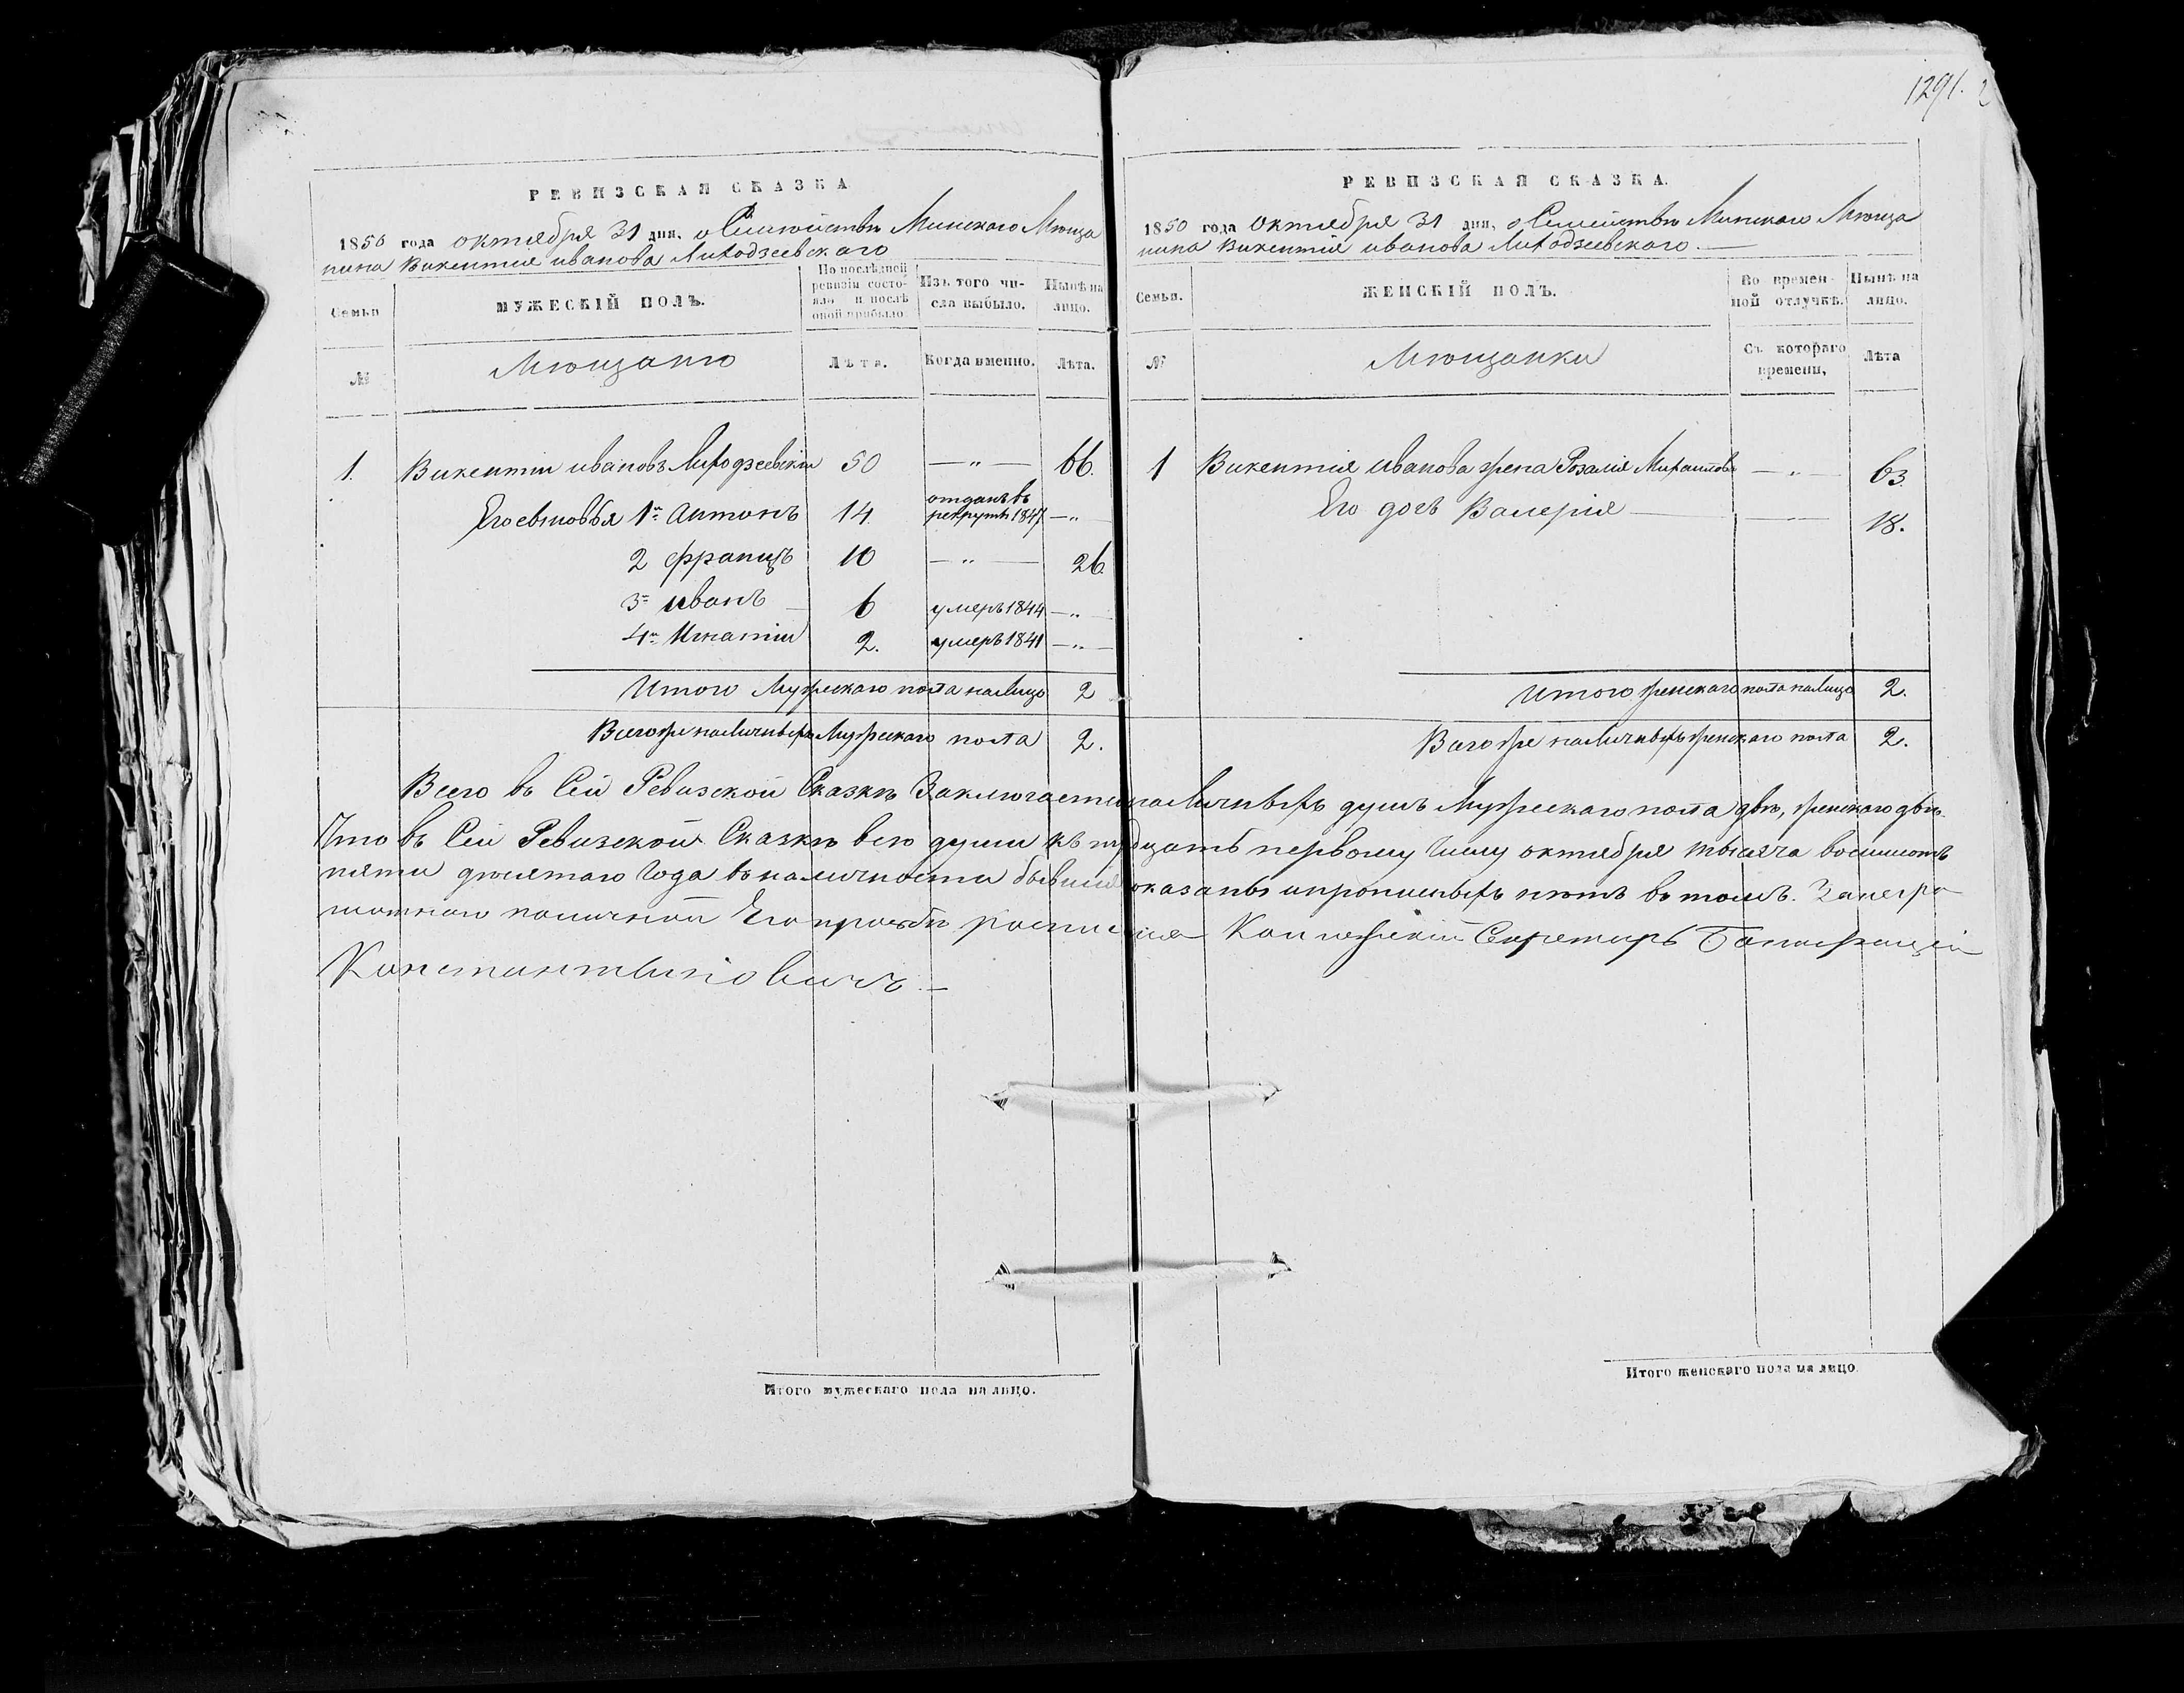 1291. 2
РЕВИЗСКАЯ СКАЗКА.
1850 года октября 31 дня, о Семействѣ Минскаго Мѣща
нина Викентія иванова Лиходзеевскаго
Семьи
МУЖЕСКІЙ ПОЛЪ.
По послѣдней ревизіи состояло и послѣ оной прибыло.
Изъ того числа выбыло.
Нынѣ на лицо.
№
Мѣщанѣ
Лѣта.
Когда именно.
Лѣта.
1. Викентіи ивановъ Лиходзеевскіи 50 —"— 66.
Его сыновья 1й Антонъ 14. отданъ въ рекруты 1847 —"—
2 францъ 10 —"— 26
3й иванъ 6 умеръ 1844 —"—
4й Игнатіи 2. умеръ 1841 —"—
Итого Мужескаго пола налицо 2
Всегоже наличныхъ Мужескаго пола 2.
РЕВИЗСКАЯ СКАЗКА.
1850 года октября 31 дня, о Семействѣ Минскаго Мѣща
нина Викентія иванова Лиходзеевскаго.—
Семьи.
ЖЕНСКІЙ ПОЛЪ.
Во временной отлучкѣ.
Нынѣ на лицо.
№
Мѣщанки
Съ котораго времени,
Лѣта
1 Викентія иванова жена Розалія Михаилова —"— 63.
Его дочь Валерія — — 18.
Итого женскаго пола налицо 2.
Всего же наличныхъ женскаго пола 2.
Всего въ Сеи Ревизской Сказкѣ Заключается наличныхъ душъ Мужескаго пола двѣ, женскаго двѣ.
Что въ Сеи Ревизской Сказкѣ всѣ души къ тридцать первому числу октября тысяча восимсотъ
пяти десятаго года въ наличности бывшие показаны и прописныхъ нѣтъ въ томъ. За негра
мотнаго по личной Его прозьбѣ росписался Коллежскіи Секретарь Бонифацій
Константиновичъ.—
Итого мужескаго пола на лицо.
Итого женскаго пола на лицо.